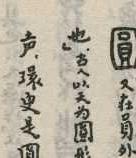 圓 又在員外
也，古人以天為圓形
声，環更是圓